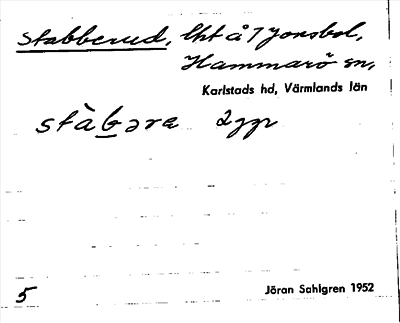 Stabberud, lht å 1 Jonsbol,
Hammarö sn,
Karlstads hd, Värmlands län
stàbəra 2ggr
5
Jöran Sahlgren 1952